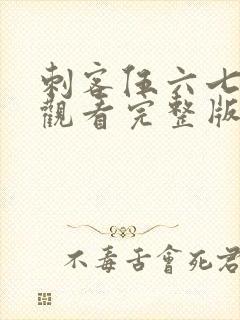 刺客伍六七
觀看完整版
不毒舌會死君